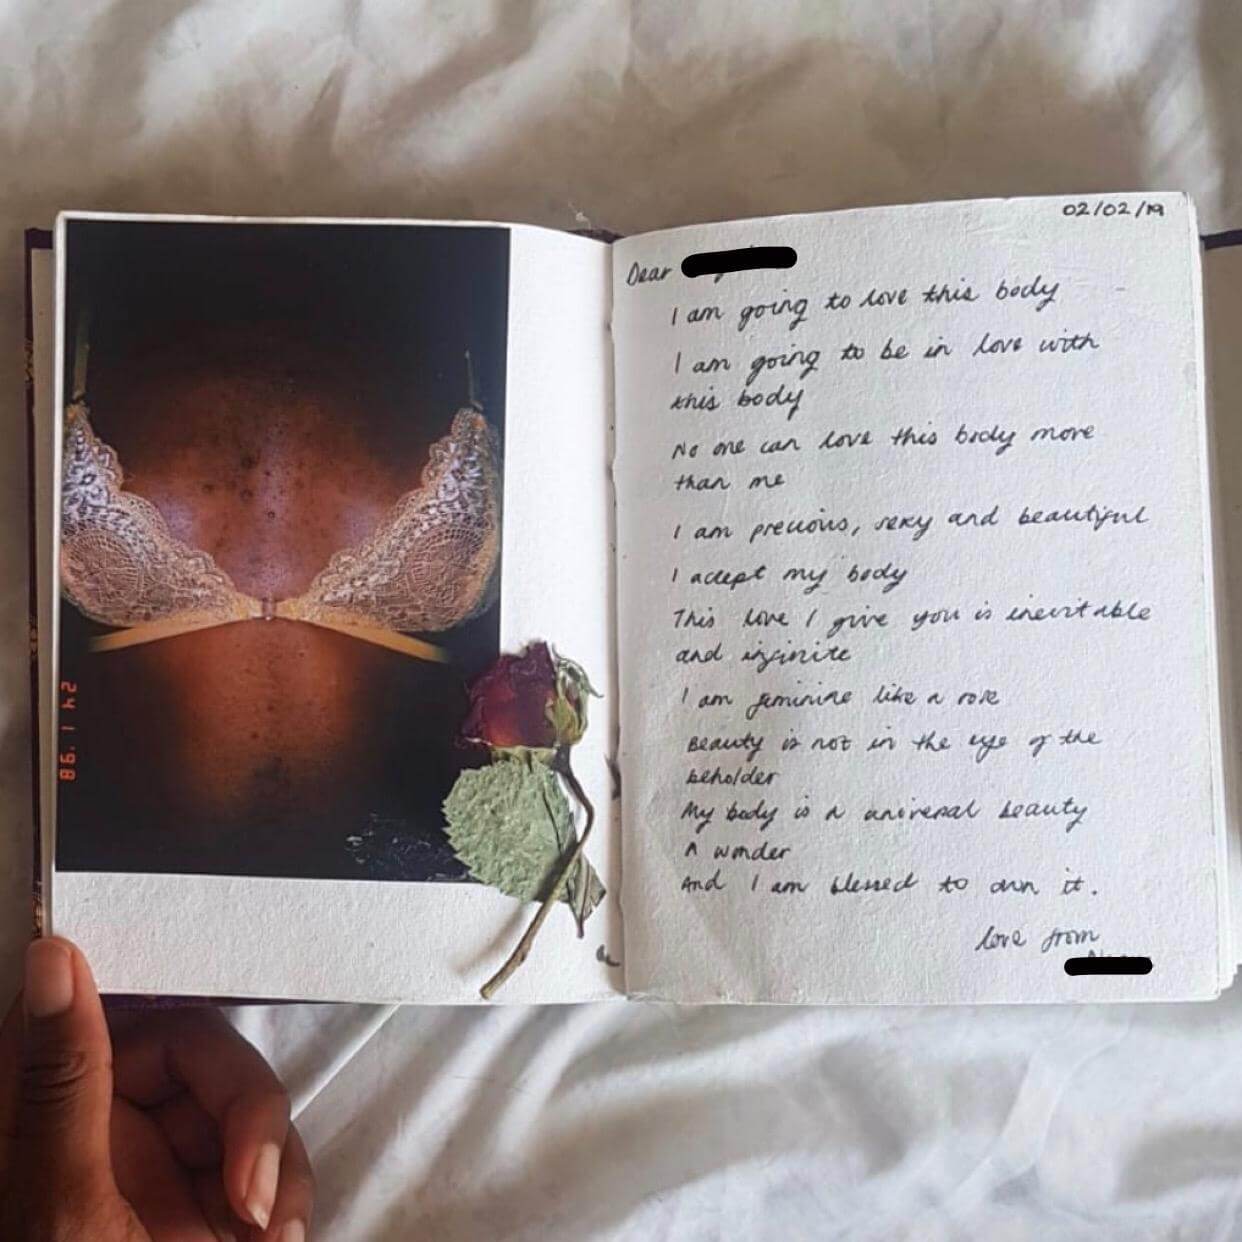 24 1 '98
02/02/19
Dear
I am going to love this body
I am going to be in love with
this body
No one can love this body more
than me
I am precious, sexy and beautiful
I accept my body
This love I give you is inevitable
and infinite
I am feminine like a rose
Beauty is not in the eye of the
beholder
My body is a universal beauty
A wonder
And I am blessed to own it.
love from